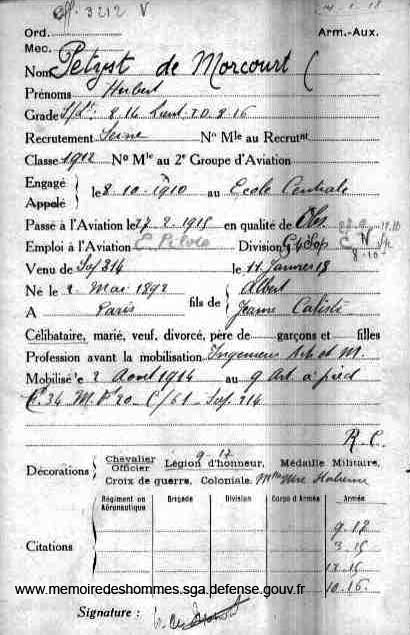 Off. 3212 V
Ord.
Mec.
Arm.-Aux.
Nom Petyst de Morcourt (
Prénoms Herbert
Grade S/Lt: 8.14 Lieut: 8.16
Recrutement Seine Nº Mle au Recrutnt
Classe 1912 Nº Mle au 2e Groupe d'Aviation
Engagé
Appelé
le 8.10.1910 au Ecole Centrale
Passé à l'Aviation le 27.2.1915 en qualité de Obs.
Emploi à l'Aviation E. Pilote Division
Venu de Sop 214 le 11 Janvier 18
Né le 2 Mai 1892
A Paris
fils de
Albert
Jeanne
Célibataire, marié, veuf, divorcé, père de garçons et filles
Profession avant la mobilisation Ingénieur Art et M.
Mobilisé le 2 Aout 1914 au 9 Art à pied
C 34 M.F 20. C/61. Sop. 214
R.C.
Décorations
Chevalier
Officier
9.17
Légion d'honneur, Médaille Militaire,
Croix de guerre, Coloniale.
Citations
Régiment ou Aéronautique
Brigade
Division
Corps d'Armée
Armée
9.17
3.15
10.16.
www.memoiredeshommes.sga.defense.gouv.fr
Signature :